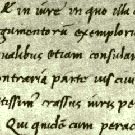 E in iure in quo illi
rgumentorũ exemploru
ualibus etiam consular
ontraria parte ius ciui
tissimꝰ crassus iuris pe
Qui quidẽ cum pera